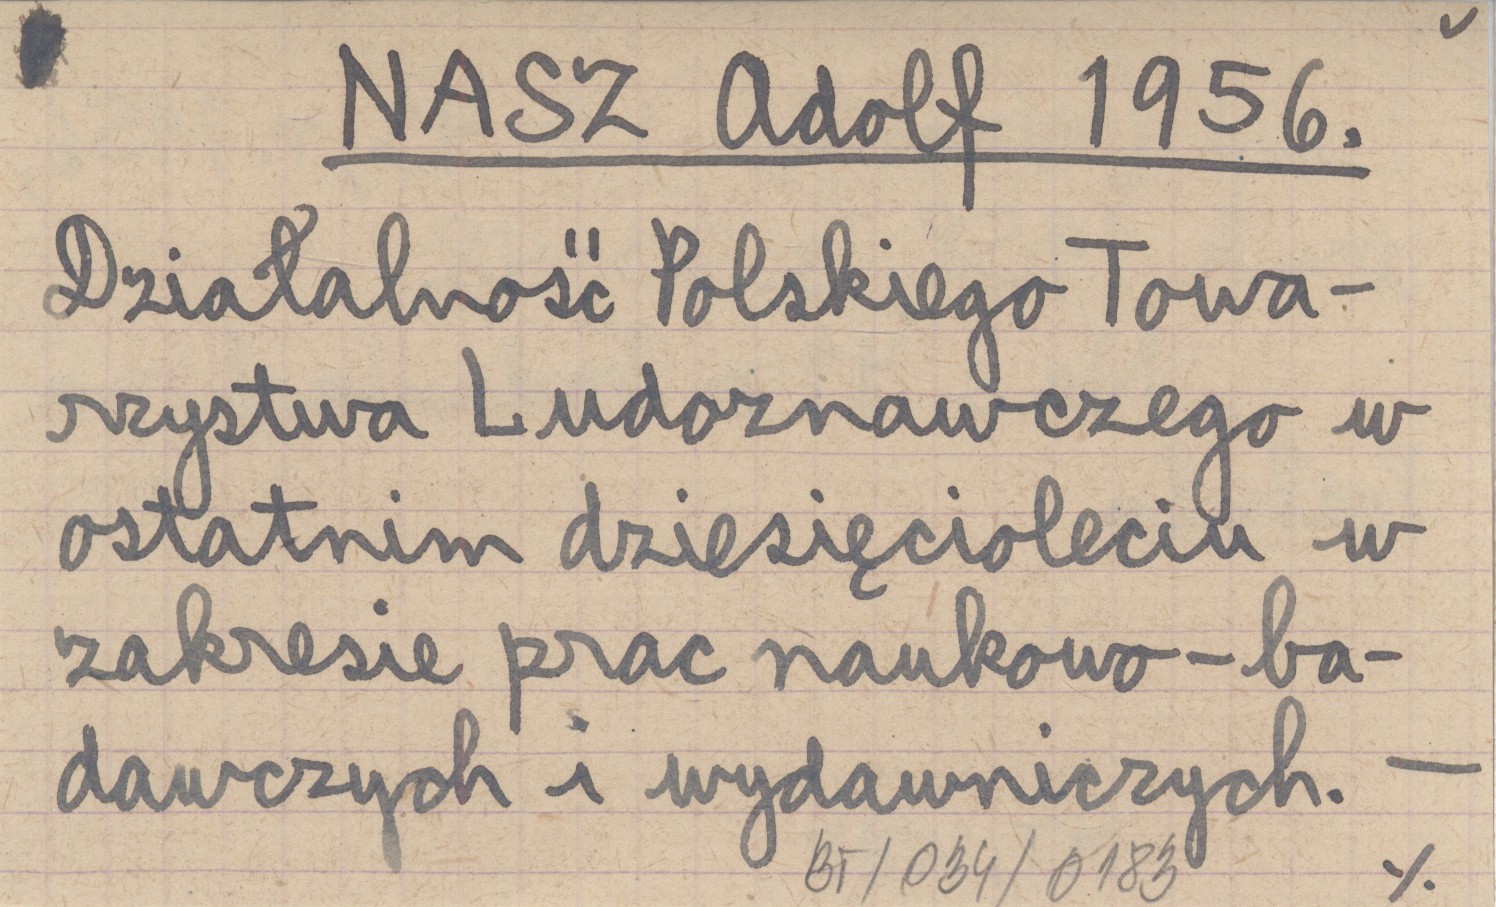 NASZ Adolf 1956.
Działalność Polskiego Towa-
rzystwa Ludoznawczego w
ostatnim dziesięcioleciu w
zakresie prac naukowo-ba-
dawczych i wydawniczych. —
BT/034/0183
./.